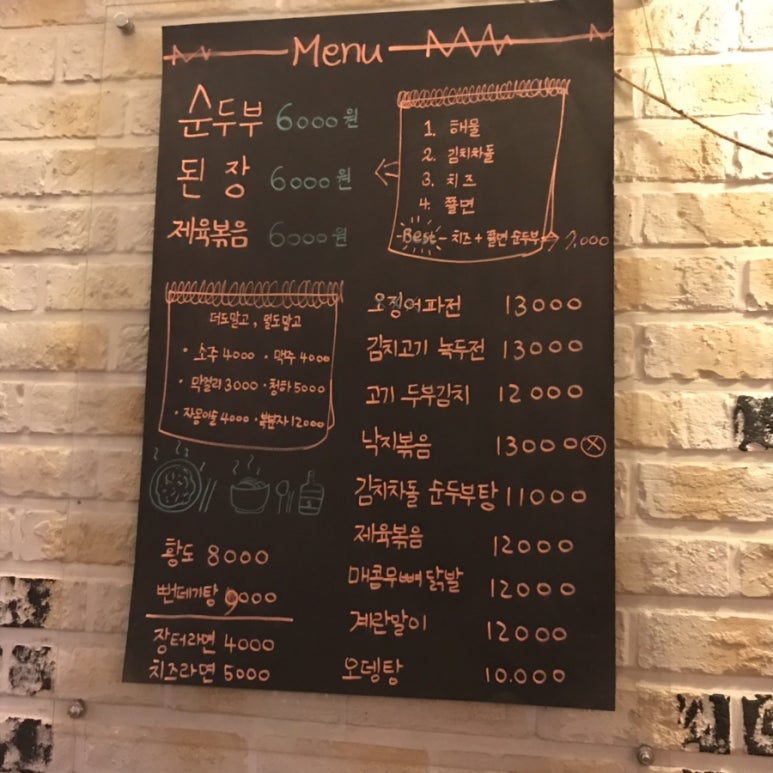 Menu
순두부 6000원
된장 6000원
제육볶음 6000원
1. 해물
2. 김치차돌
3. 치즈
4. 쫄면
-Best- 치즈 + 쫄면 순두부 → 7,000
더도말고, 덜도말고
· 소주 4000 · 맥주 4000
· 막걸리 3000 · 청하 5000
· 자몽이슬 4000 · 복분자 12000
황도 8000
뻔데기탕 9000
장터라면 4000
치즈라면 5000
오징어파전 13000
김치고기 녹두전 13000
고기 두부김치 12000
낙지볶음 13000
김치차돌 순두부탕 11000
제육볶음 12000
매콤무뼈닭발 12000
계란말이 12000
오뎅탕 10.000